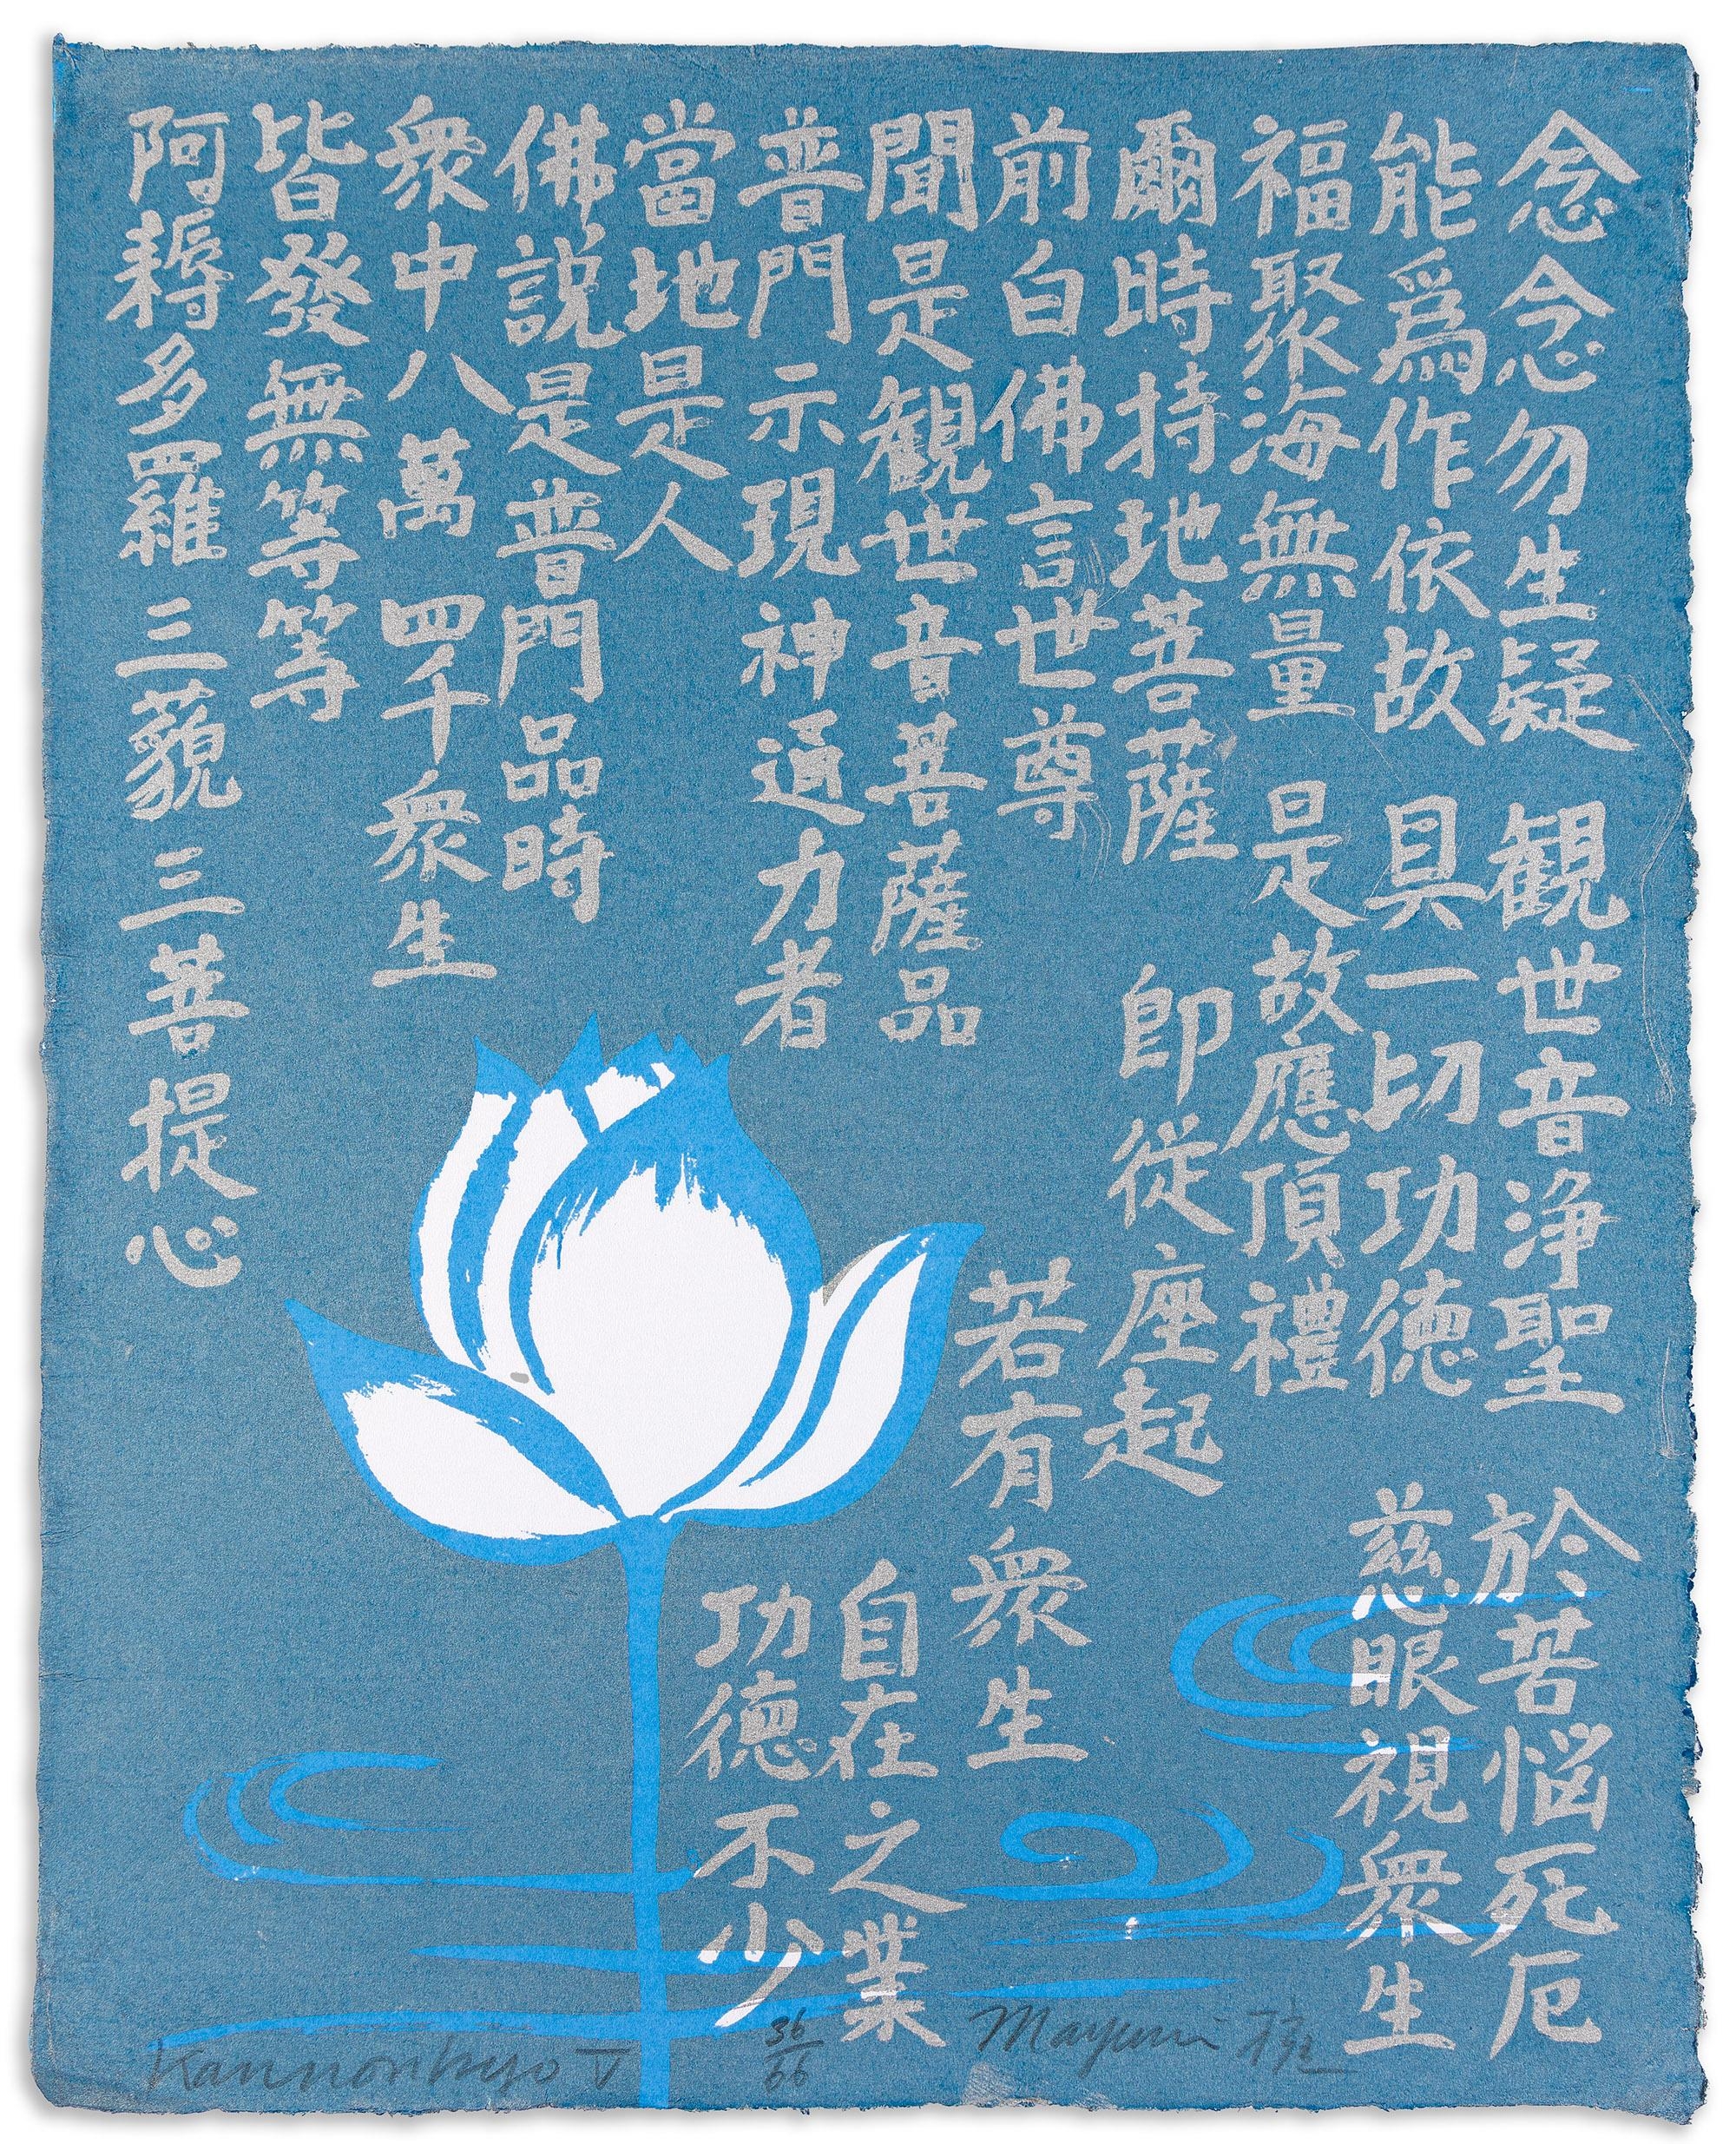 念念勿生疑 観世音浄聖 於苦悩死厄
能爲作依故 具一切功徳 慈眼視衆生
福聚海無量 是故應頂禮
爾時持地菩薩 即從座起
前白佛言世尊 若有衆生
聞是観世音菩薩品 自在之業
普門示現神通力者 功徳不少
當地是人
佛説是普門品時
衆中八萬四千衆生
皆發無等等
阿耨多羅三藐三菩提心
Kannonkyo V 36/66 Mayumi